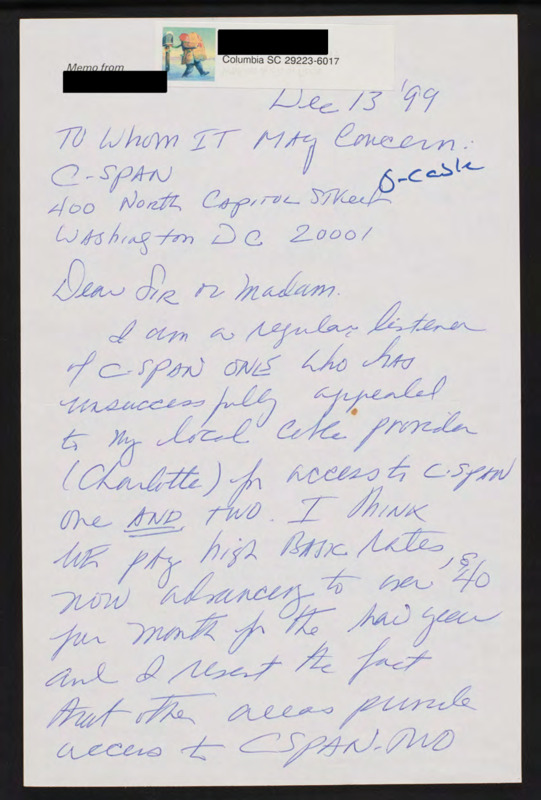 Memo from
Columbia SC 29223-6017
Dec 13 '99
TO Whom IT MAy Concern:
C-SPAN
400 North Capitol Street
Washington DC 20001
Dear Sir or Madam.
I am a regular listener
of C-SPAN ONE who has
unsuccessfully appealed
to my local cable provider
(Charlotte) for access to C-SPAN
one AND TWO. I think
WE pay high BASIC rates
now advancing to over $40
per month for the new year
and I resent the fact
that other areas provide
access to CSPAN-TWO